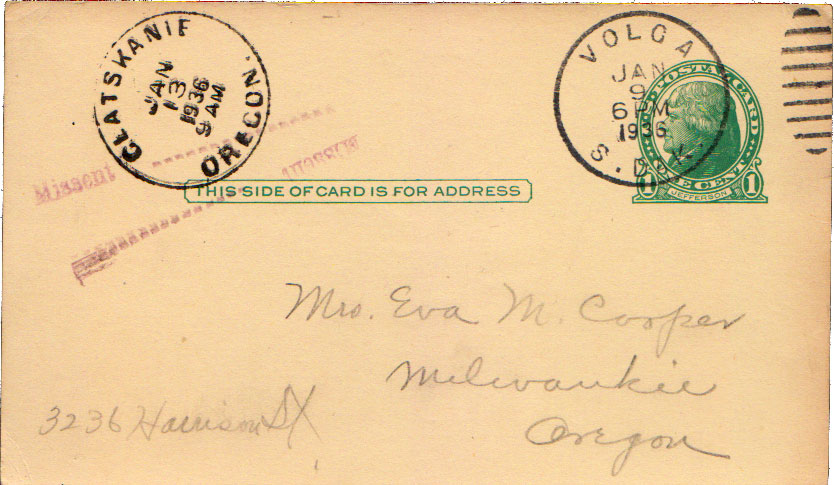 CLATSKANIE
JAN
13
1936
9 AM
OREGON
VOLGA
JAN
9
6 PM
1936
S. DAK.
POSTAL CARD
ONE CENT
1 JEFFERSON 1
Missent
THIS SIDE OF CARD IS FOR ADDRESS
Mrs. Eva M. Cooper
Milwaukie
Oregon
3236 Harrison St